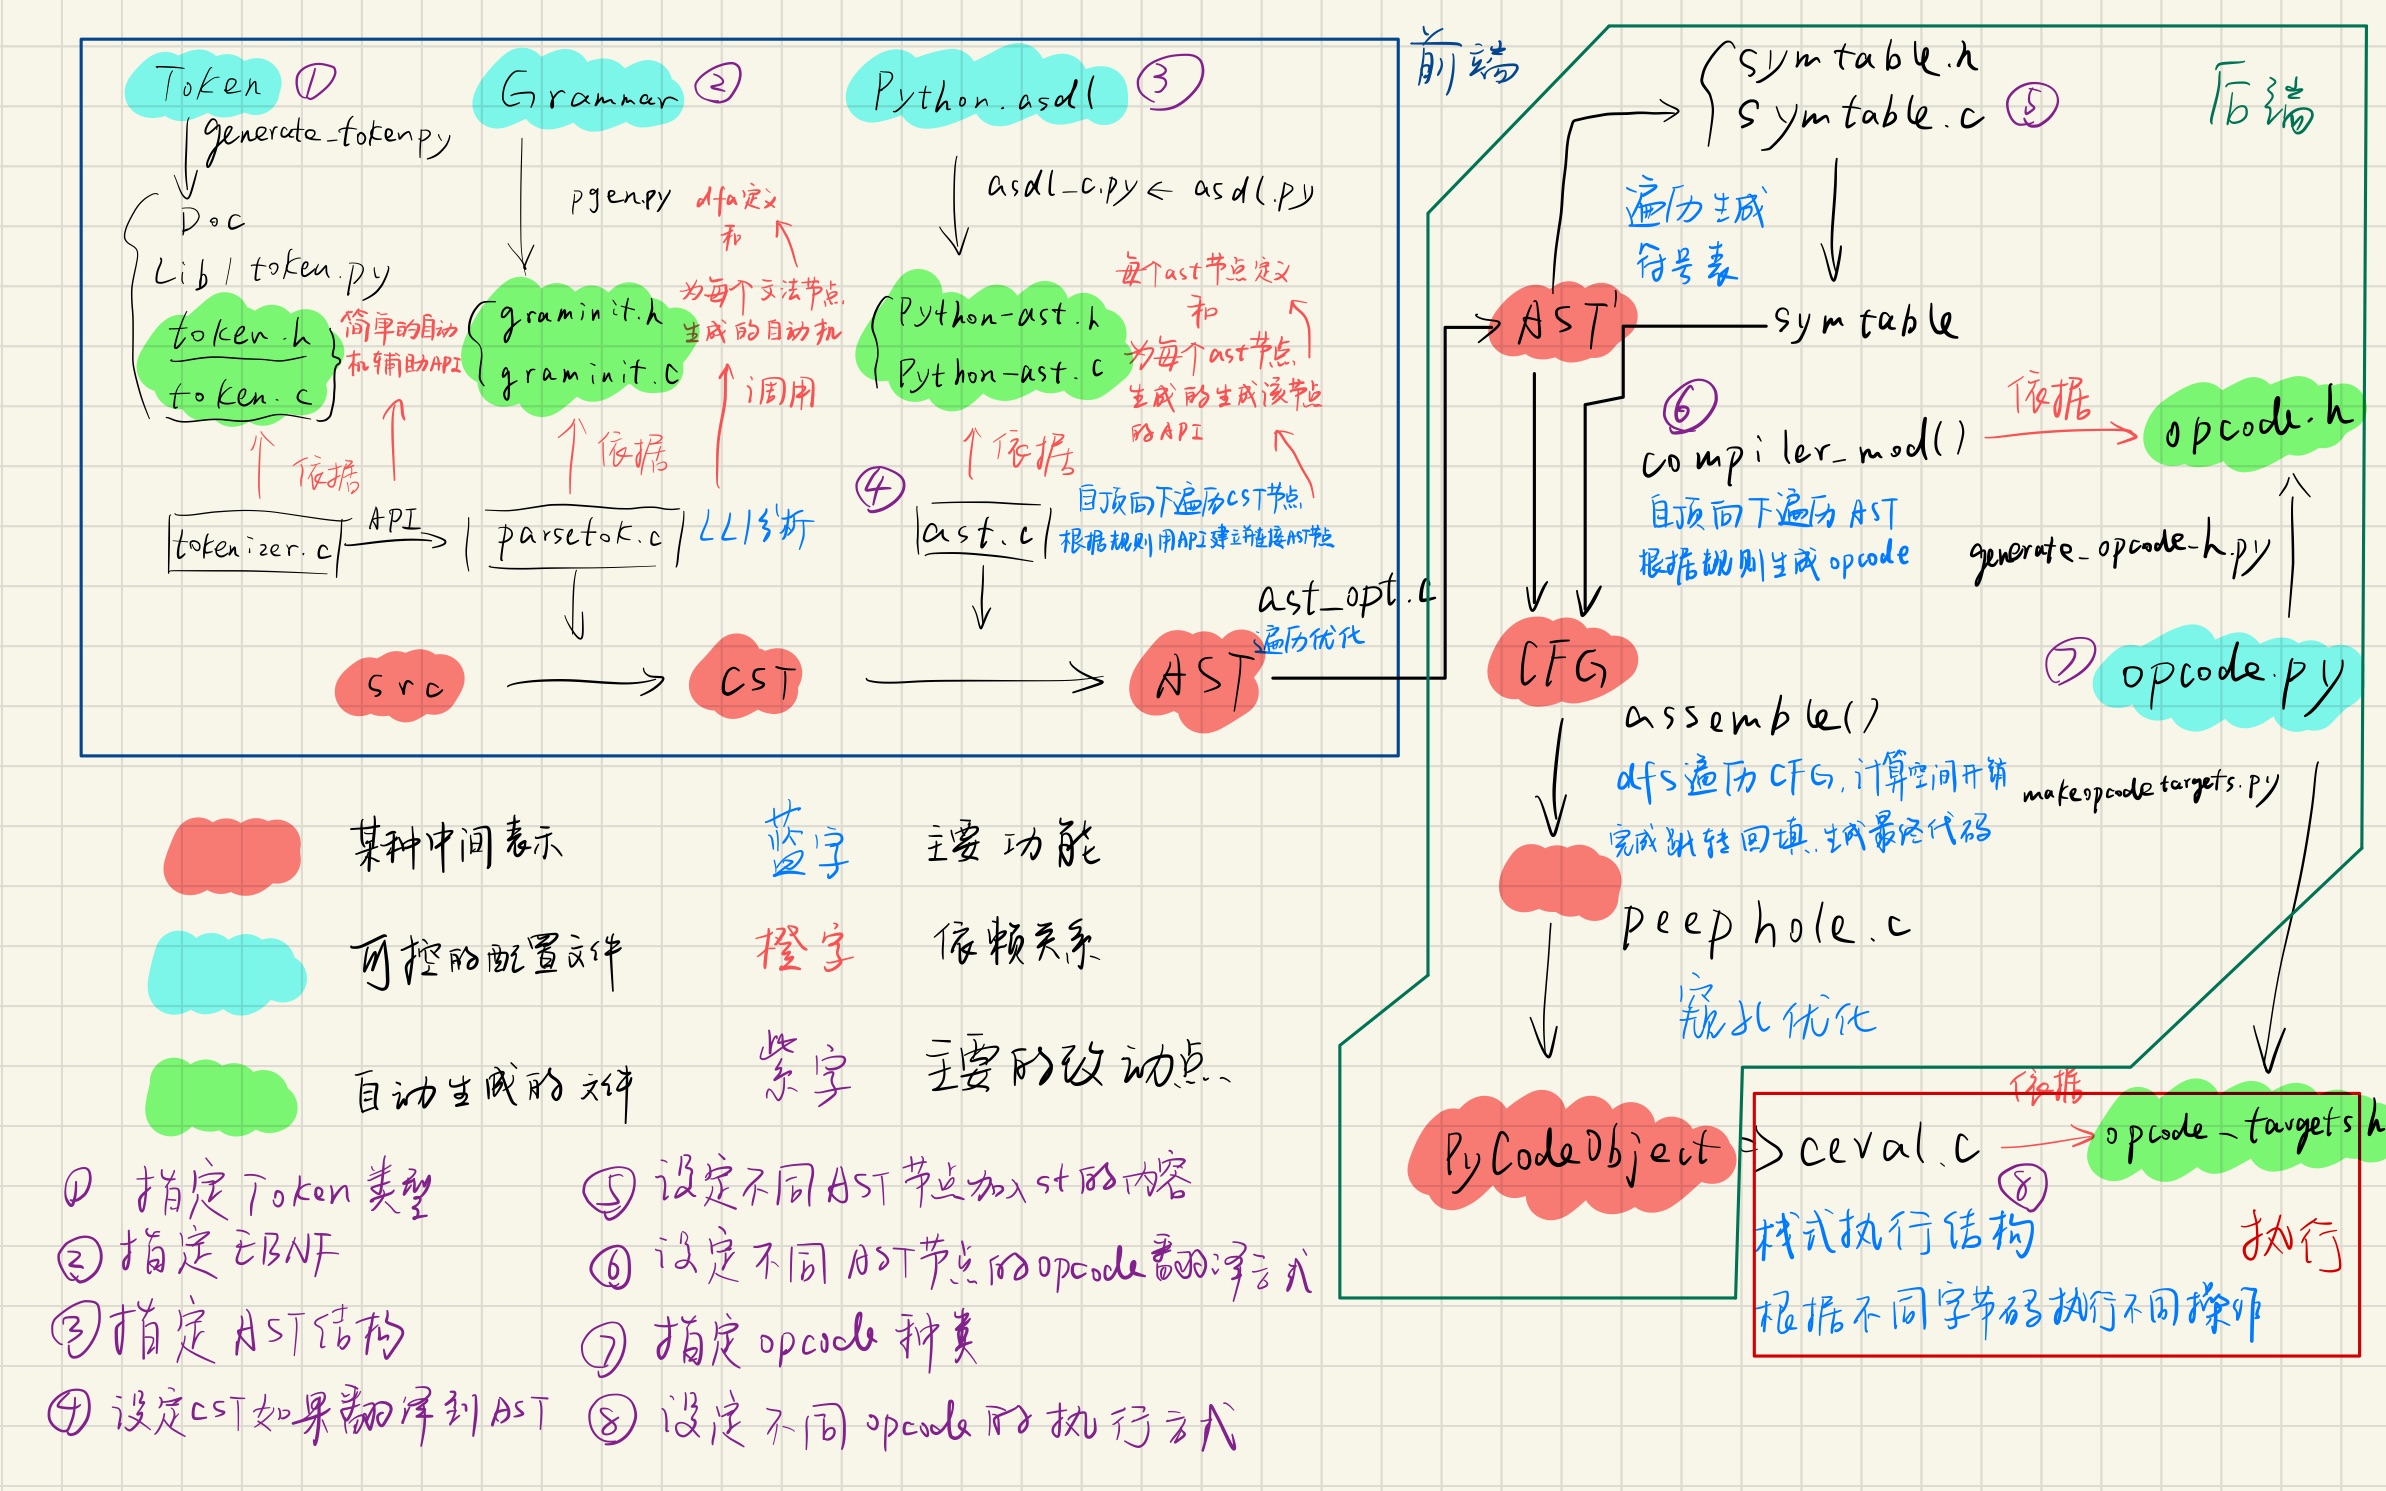 Token ①
generate_token.py
Doc
Lib / token.py
token.h
token.c
简单的自动
机辅助API
依据
tokenizer.c
API
Grammar ②
pgen.py
dfa定义
和
为每个文法节点
生成的自动机
graminit.h
graminit.c
调用
依据
parsetok.c
LL1分析
Python.asdl ③
asdl_c.py ← asdl.py
每个ast节点定义
和
为每个ast节点
生成的生成该节点
的API
Python-ast.h
Python-ast.c
依据
④
ast.c
自顶向下遍历CST节点
根据规则用API建立并链接AST节点
src
CST
AST
ast_opt.c
遍历优化
前端
后端
symtable.h
symtable.c ⑤
遍历生成
符号表
AST'
symtable
⑥
compiler_mod()
依据
opcode.h
自顶向下遍历AST
根据规则生成opcode
generate_opcode_h.py
CFG
⑦ opcode.py
assemble()
dfs遍历CFG,计算空间开销
完成跳转回填,生成最终代码
makeopcodetargets.py
peephole.c
窥孔优化
PyCodeObject
ceval.c
依据
opcode_targets.h
⑧
栈式执行结构
执行
根据不同字节码执行不同操作
某种中间表示
蓝字 主要功能
可控的配置文件
橙字 依赖关系
自动生成的文件
紫字 主要的改动点
① 指定Token类型
② 指定EBNF
③ 指定AST结构
④ 设定CST如果翻译到AST
⑤ 设定不同AST节点加入st的内容
⑥ 设定不同AST节点的opcode翻译方式
⑦ 指定opcode种类
⑧ 设定不同opcode的执行方式